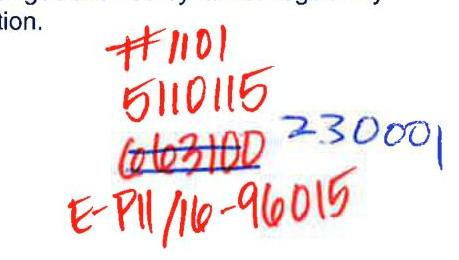 tion.
#1101
5110115
663100 230001
E-P11/16-96015